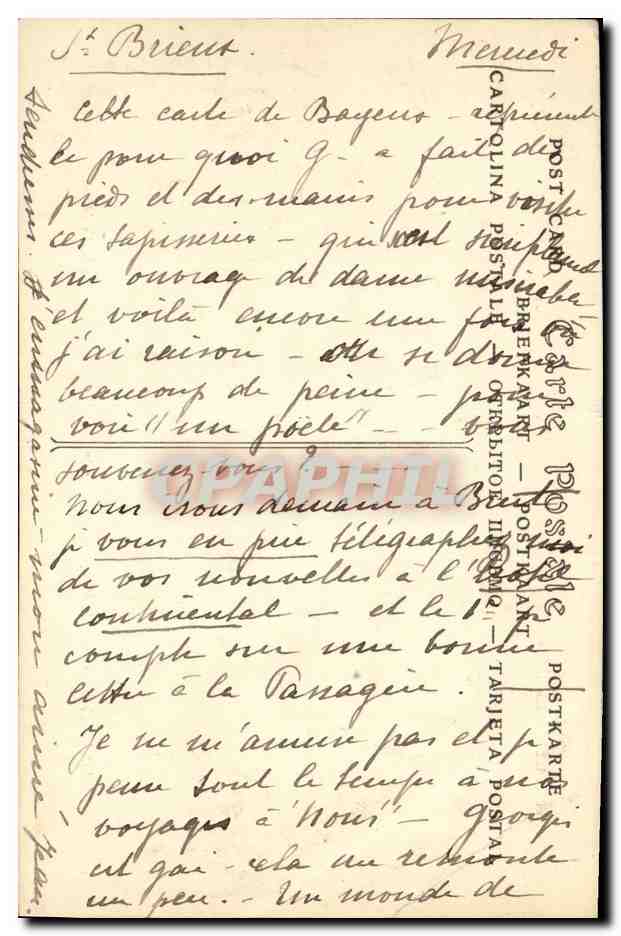 St Brieux. Mercredi
Cette carte de Bayeux - représente
le pour quoi G - a fait des
pieds et des mains pour visiter
ces tapisseries - qui est simplement
un ouvrage de dame misérable!
et voilà encore une fois où
j'ai raison - se donne
beaucoup de peine - pour
voir "un poële" - - vous
souvenez-vous? - - -
Nous irons demain à Brest
je vous en prie télégraphiez moi
de vos nouvelles à l'Hotel
Continental - et le 1er je
compte sur une bonne
lettre à la Passagère.
Je ne m'amuse pas et je
pense tout le temps à nos
voyages à "Nous" - Georges
est gai - cela me remonte
un peu. - Un monde de
tendresses. J'emmagasine - mon aimé Jean.
POST CARD Carte Postale POSTKARTE
BRIEFKAART — POSTKAART
CARTOLINA POSTALE — ОТКРЫТОЕ ПИСЬМО — TARJETA POSTAL
CPAPHIL